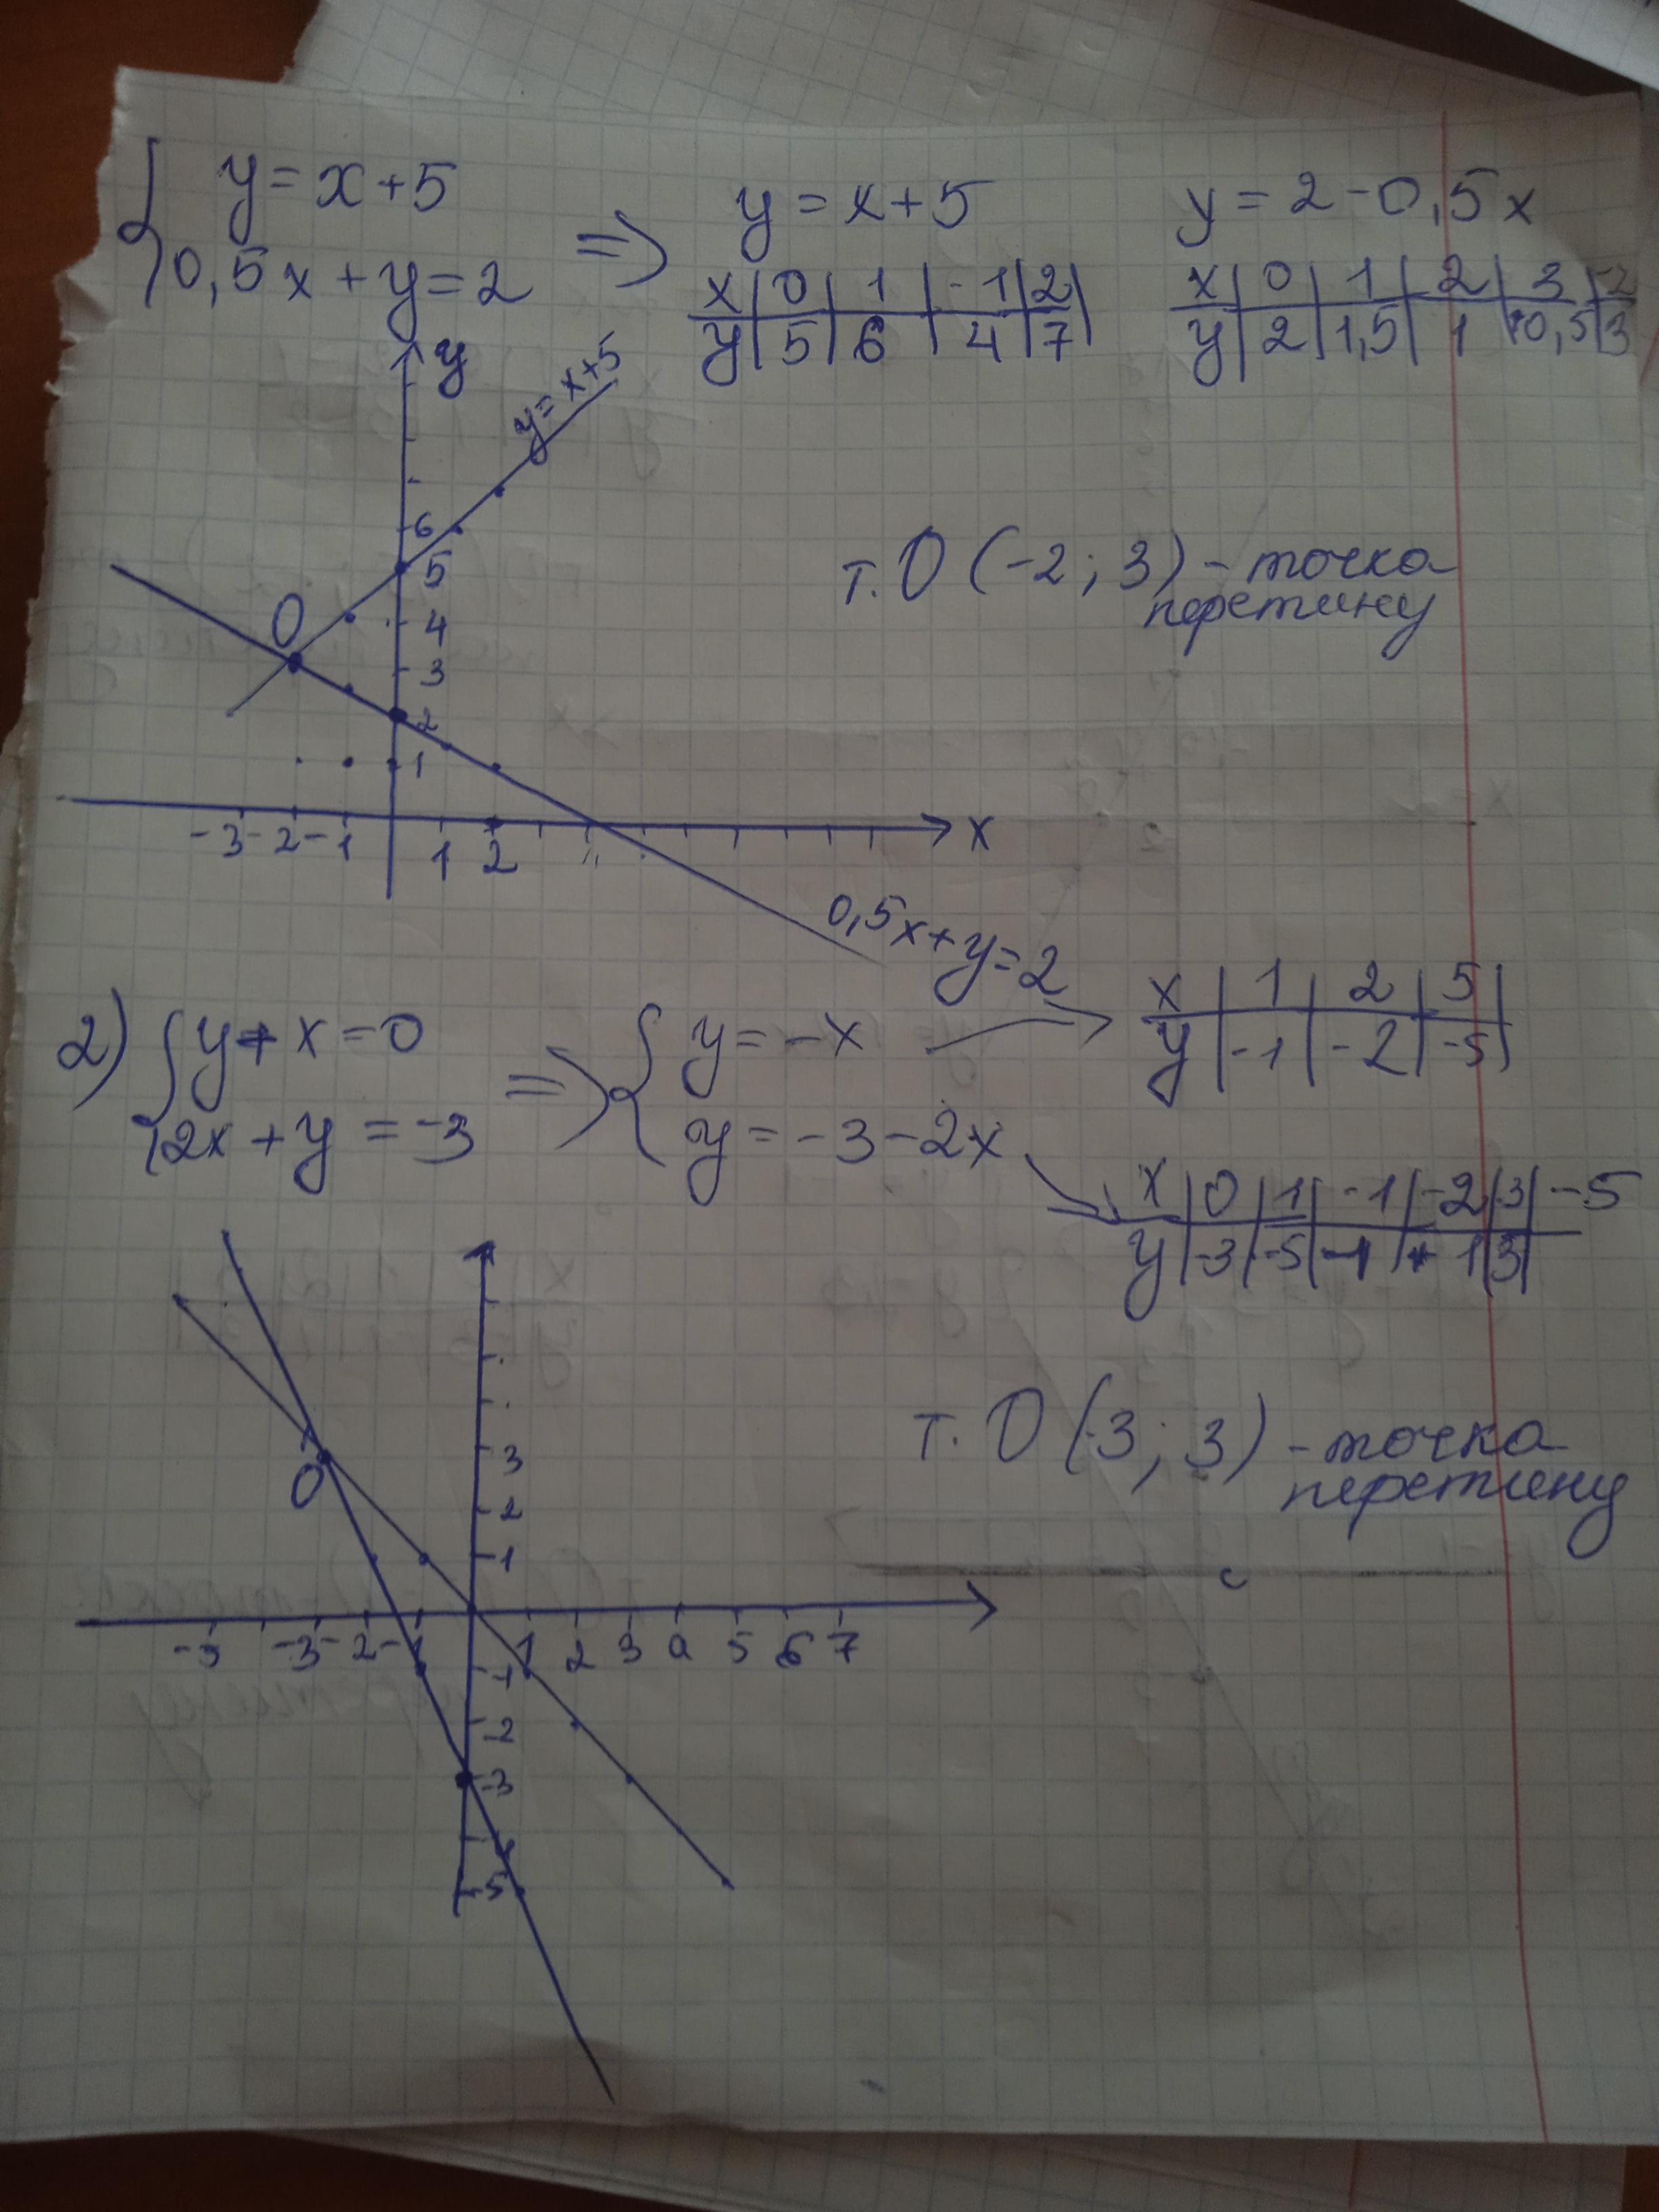 { y = x + 5
0,5x + y = 2
=> y = x + 5
x | 0 | 1 | -1 | 2 |
y | 5 | 6 | 4 | 7 |
y = 2 - 0,5x
x | 0 | 1 | 2 | 3 | -2
y | 2 | 1,5 | 1 | 0,5 | 3
y
y = x+5
6
5
4
3
2
1
O
-3 -2 -1 1 2 x
0,5x + y = 2
т. O (-2; 3) - точка
перетину
2) { y + x = 0
2x + y = -3
=> { y = -x
y = -3 - 2x
x | 1 | 2 | 5 |
y | -1 | -2 | -5 |
x | 0 | 1 | -1 | -2 | -3 | -5
y | -3 | -5 | -1 | 1 | 3 |
3
2
1
O
-5 -3 -2 -1 1 2 3 4 5 6 7
-1
-2
-3
-5
т. O (-3; 3) - точка
перетину